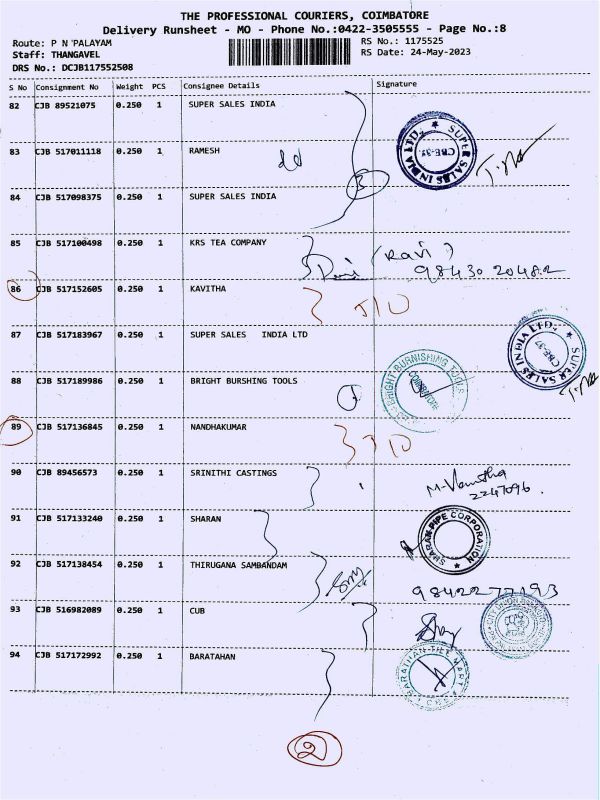 THE PROFESSIONAL COURIERS, COIMBATORE
Delivery Runsheet - MO - Phone No.:0422-3505555 - Page No.:8
Route: P N PALAYAM RS No.: 1175525
Staff: THANGAVEL RS Date: 24-May-2023
DRS No.: DCJB117552508
S No Consignment No Weight PCS Consignee Details Signature
82 CJB 89521075 0.250 1 SUPER SALES INDIA
SUPER SALES IN INDIA LTD. CBE-37
83 CJB 517011118 0.250 1 RAMESH
3
84 CJB 517098375 0.250 1 SUPER SALES INDIA
85 CJB 517100498 0.250 1 KRS TEA COMPANY
(Ravi)
98430 20482
86 CJB 517152605 0.250 1 KAVITHA
87 CJB 517183967 0.250 1 SUPER SALES INDIA LTD
SUPER SALES IN INDIA LTD. CBE-37
88 CJB 517189986 0.250 1 BRIGHT BURSHING TOOLS
BRIGHT BURNISHING TOOLS COIMBATORE
89 CJB 517136845 0.250 1 NANDHAKUMAR
90 CJB 89456573 0.250 1 SRINITHI CASTINGS
2247096.
91 CJB 517133240 0.250 1 SHARAN
SHARAN PIPE CORPORATION
92 CJB 517138454 0.250 1 THIRUGANA SAMBANDAM
9842277193
93 CJB 516982089 0.250 1 CUB
94 CJB 517172992 0.250 1 BARATAHAN
2